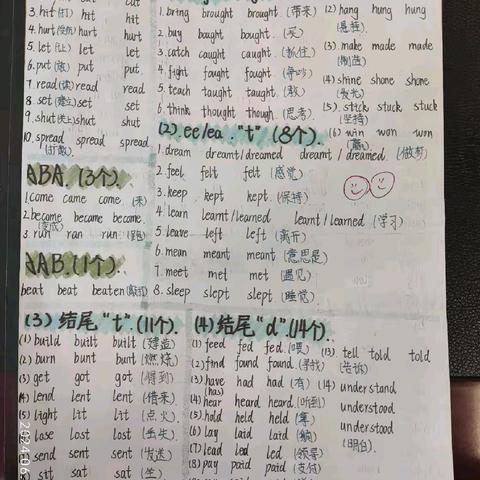 3. hit (打) hit hit
4. hurt (受伤) hurt hurt
5. let (让) let let
6. put (放) put put
7. read (读) read read
8. set (建立) set set
9. shut (关上) shut shut
10. spread spread spread
(打散)
ABA. (3个).
1. come came come. (来)
2. become became become.
(变成)
3. run ran run (跑)
AAB. (1个).
beat beat beaten (敲打)
1. bring brought brought. (带来)
2. buy bought bought. (买)
3. catch caught caught. (抓住)
4. fight fought fought. (争吵)
5. teach taught taught. (教)
6. think thought thought. (思考)
(2) hang hung hung
(悬挂)
(3). make made made
(制造)
(4) shine shone shone
(发光)
(5). stick stuck stuck
(坚持)
(6) win won won
(赢)
(2). ee/ea. "t" (8个).
1. dream dreamt/dreamed dreamt/dreamed. (做梦)
2. feel felt felt (感觉)
3. keep kept kept. (保持)
4. learn learnt/learned learnt/learned (学习)
5. leave left left (离开)
6. mean meant meant (意思是)
7. meet met met (遇见)
8. sleep slept slept. (睡觉)
(3) 结尾 "t". (11个).
(1) build built built (建造)
(2) burn bunt bunt (燃烧)
(3) get got got (得到)
(4) lend lent lent (借来)
(5) light lit lit (点火)
lose lost lost (丢失)
send sent sent (发送)
sit sat sat (坐)
(4) 结尾 "d". (14个).
(1) feed fed fed. (喂)
(2) find found found. (寻找)
(3) have had had (有)
(has)
(4) hear heard heard. (听到)
(5) hold held held (拿)
(6) lay laid laid (躺)
(7) lead led led (领导)
(8) pay paid paid (支付)
(13) tell told told
(告诉)
(14) understand
understood
understood
(明白)